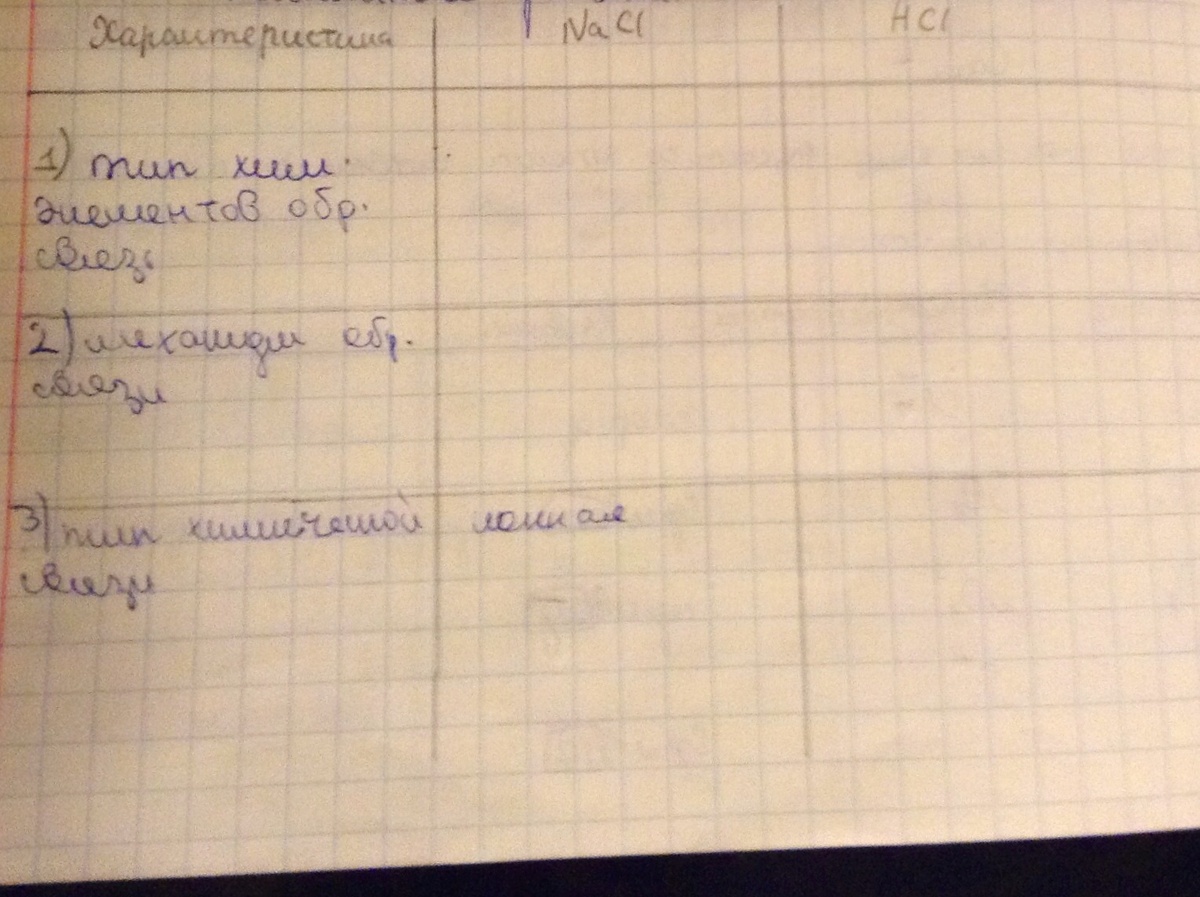 Характеристика NaCl HCl
1) тип хим.
элементов обр.
связь
2) механизм обр.
связи
3) тип химической ионная
связи